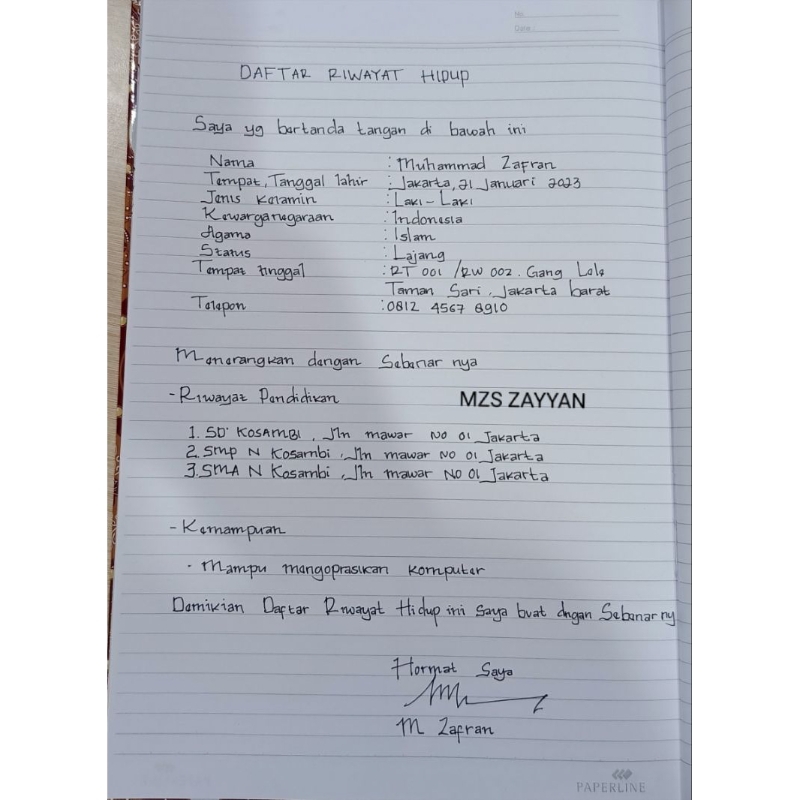 No
Date
DAFTAR RIWAYAT HIDUP
Saya yg bertanda tangan di bawah ini
Nama : Muhammad Zafran
Tempat, Tanggal lahir : Jakarta, 21 Januari 2023
Jenis Kelamin : Laki-Laki
Kewarganegaraan : Indonesia
Agama : Islam
Status : Lajang
Tempat tinggal : RT 001 /RW 002. Gang Lele
Taman Sari, Jakarta barat
Telepon : 0812 4567 8910
Menerangkan dengan Sebenar nya
- Riwayat Pendidikan
MZS ZAYYAN
1. SD KOSAMBI, Jln mawar No 01 Jakarta
2. Smp N Kosambi, Jln mawar No 01 Jakarta
3. SMA N Kosambi, Jln mawar No 01 Jakarta
- Kemampuan
· Mampu mengoprasikan komputer
Demikian Daftar Riwayat Hidup ini Saya buat dngan Sebenar ny
Hormat Saya
M Zafran
PAPERLINE